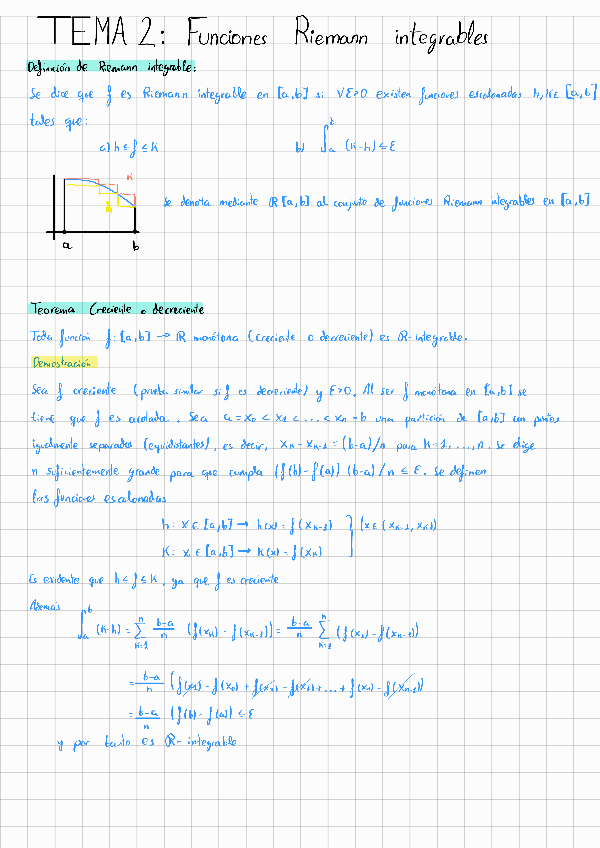 TEMA 2: Funciones Riemann integrables
Definición de Riemann integrable:
Se dice que f es Riemann integrable en [a,b] si ∀ε>0 existen funciones escalonadas h,k∈ [a,b]
tales que:
a) h ≤ f ≤ k b) ∫_a^b (k-h) ≤ ε
k
h
a b
Se denota mediante R[a,b] al conjunto de funciones Riemann integrables en [a,b]
Teorema Creciente o decreciente
Toda función f: [a,b] → R monótona (creciente o decreciente) es R-integrable.
Demostración
Sea f creciente (prueba similar si f es decreciente) y ε>0. Al ser f monótona en [a,b] se
tiene que f es acotada. Sea a = x₀ < x₁ < ... < xₙ = b una partición de [a,b] con puntos
igualmente separados (equidistantes), es decir, xₖ - xₖ₋₁ = (b-a)/n para k=1,...,n. Se elige
n suficientemente grande para que cumpla (f(b) - f(a)) (b-a)/n ≤ ε. Se definen
las funciones escalonadas
h: x ∈ [a,b] → h(x) = f(xₖ₋₁) } (x∈(xₖ₋₁, xₖ))
k: x ∈ [a,b] → k(x) = f(xₖ)
Es evidente que h ≤ f ≤ k, ya que f es creciente
Además
∫_a^b (k-h) = ∑_{k=1}^n (b-a)/n (f(xₖ) - f(xₖ₋₁)) = (b-a)/n ∑_{k=1}^n (f(xₖ) - f(xₖ₋₁))
= (b-a)/n (f(x₁) - f(x₀) + f(x₂) - f(x₁) + ... + f(xₙ) - f(xₙ₋₁))
= (b-a)/n (f(b) - f(a)) ≤ ε
y por tanto es R-integrable